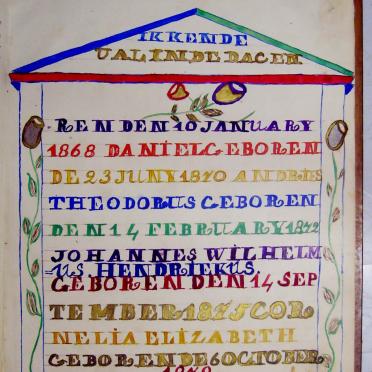 IKKENDE
UALINDE DACEN
REN DEN 10 JANUARY
1868 DANIEL GEBOREN
DE 23 JUNY 1870 ANDRIES
THEODORUS GEBOREN
DEN 14 FEBRUARY 1872
JOHANNES WILHELM
US HENDRIEKUS
GEBOREN DEN 14 SEP
TEMBER 1875 COR
NELIA ELIZABETH
GEBOREN DE 6 OCTOBER